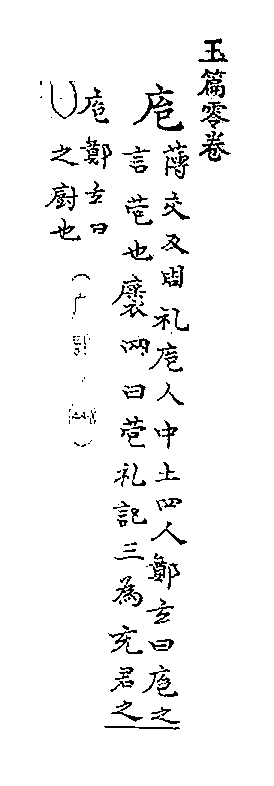 玉篇零卷
庖
薄交反周礼庖人中士四人鄭玄曰庖之
言苞也褁肉曰苞礼記三為充君之
庖鄭玄曰
之廚也